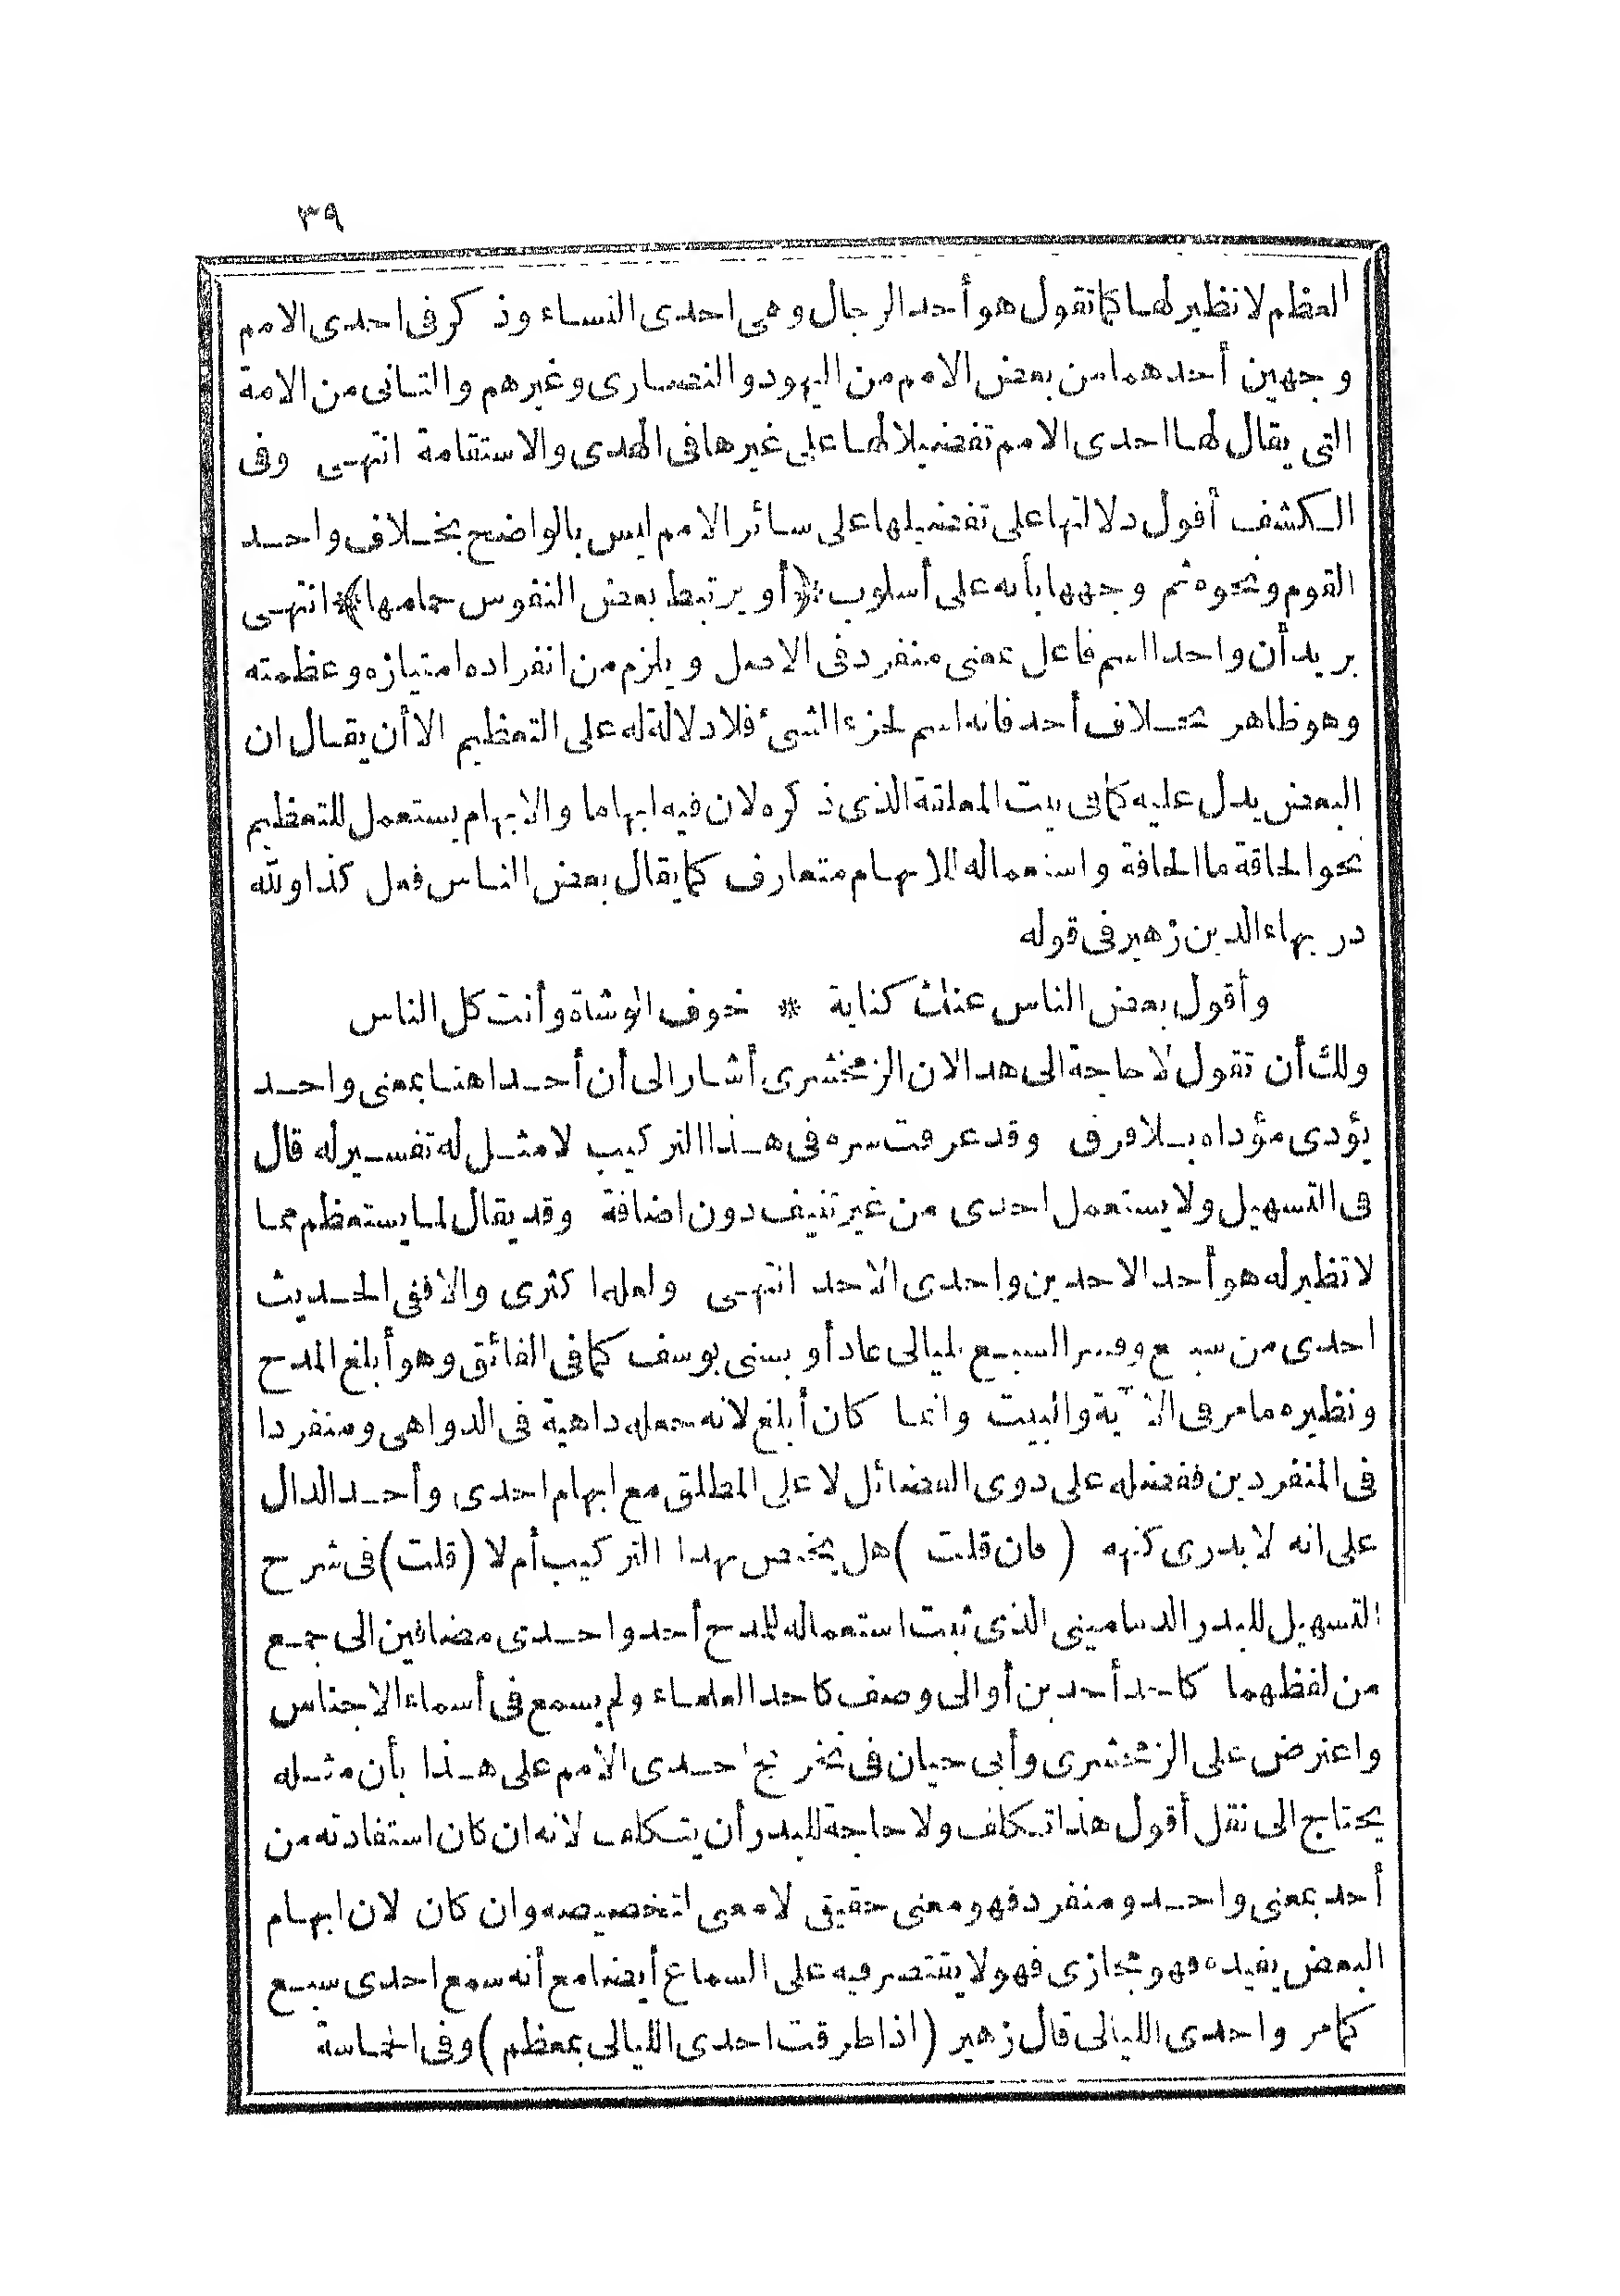 ٣٩
العظم لا نظير لها كما تقول هو أحد الرجال وهى احدى النساء وذكر فى احدى الامم
وجهين أحدهما من بعض الامم من اليهود والنصارى وغيرهم والثانى من الامة
التى يقال لها احدى الامم تفضيلا لها على غيرها فى الهدى والاستقامة انتهى وفى
الكشف أقول دلالتها على تفضيلها على سائر الامم ليس بالواضح بخلاف واحد
القوم ونحوه ثم وجهها بأنه على أسلوب * (أو يرتبط بعض النفوس حمامها) * انتهى
يريد أن واحدا اسم فاعل بمعنى منفرد فى الاصل ويلزم من انفراده امتيازه وعظمته
وهو ظاهر بخلاف أحد فانه اسم لجزء الشئ فلا دلالة له على التعظيم الا أن يقال ان
البعض يدل عليه كما فى بيت المعلقة الذى ذكره لان فيه ابهاما والابهام يستعمل للتعظيم
نحو الحاقة ما الحاقة واستعماله للابهام متعارف كما يقال بعض الناس فعل كذا ولله
در بهاء الدين زهير فى قوله
وأقول بعض الناس عنك كناية * خوف الوشاة وأنت كل الناس
ولك أن تقول لا حاجة الى هذا لان الزمخشرى أشار الى أن أحدا هنا بمعنى واحد
يؤدى مؤداه بلا فرق وقد عرفت سره فى هذا التركيب لا مثل له تفسير له قال
فى التسهيل ولا يستعمل احدى من غير تنيف دون اضافة وقد يقال لما يستعظم مما
لا نظير له هو أحد الاحدين واحدى الاحد انتهى ولعله اكثرى والا ففى الحديث
احدى من سبع وفسر السبع بليالى عاد أو بسنى يوسف كما فى الفائق وهو أبلغ المدح
ونظيره ما مر فى الآية والبيت وانما كان أبلغ لانه جعله داهية فى الدواهى ومنفردا
فى المنفردين ففضله على ذوى الفضائل لا على المطلق مع ابهام احدى وأحد الدال
على انه لا يدرى كنهه (فان قلت) هل يختص بهذا التركيب أم لا (قلت) فى شرح
التسهيل للبدر الدمامينى الذى ثبت استعماله للمدح أحد واحدى مضافين الى جمع
من لفظهما كاحد أحدين أو الى وصف كاحد العلماء ولم يسمع فى أسماء الاجناس
واعترض على الزمخشرى وأبى حيان فى تخريج احدى الامم على هذا بأن مثله
يحتاج الى نقل أقول هذا تكلف ولا حاجة للبدر أن يتكلف لانه ان كان استفادته من
أحد بمعنى واحد ومنفرد فهو معنى حقيقى لا معنى لتخصيصه وان كان لان ابهام
البعض يفيده فهو مجازى فهو لا يقتصر فيه على السماع أيضا مع أنه سمع احدى سبع
كما مر واحدى الليالى قال زهير (اذا طرقت احدى الليالى بمعظم) وفى الحماسة